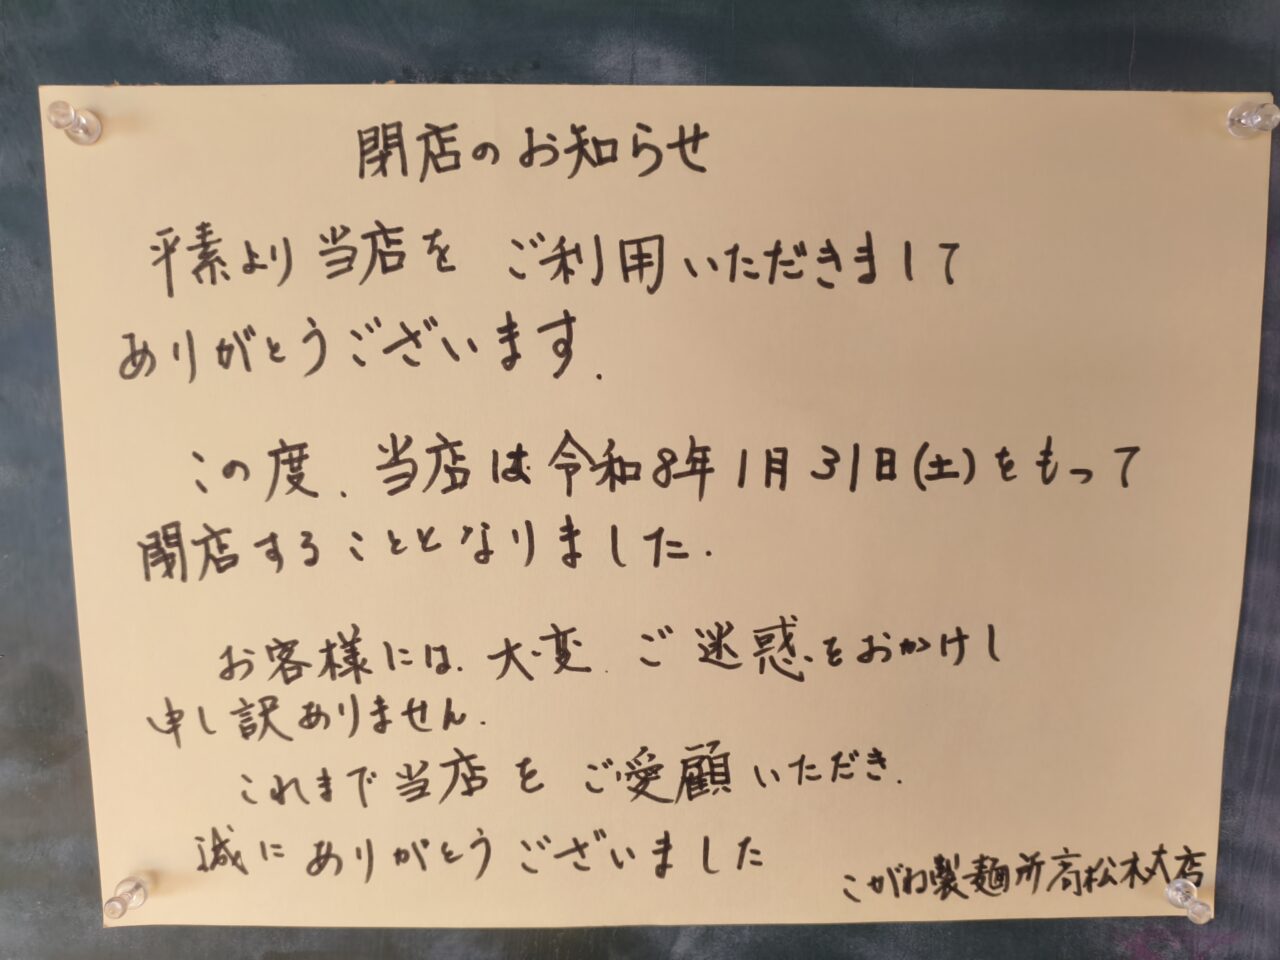 閉店のお知らせ
平素より当店をご利用いただきまして
ありがとうございます.
この度.当店は令和8年1月31日(土)をもって
閉店することとなりました.
お客様には.大変.ご迷惑をおかけし
申し訳ありません.
これまで当店をご愛顧いただき.
誠にありがとうございました
こがね製麺所高松木太店